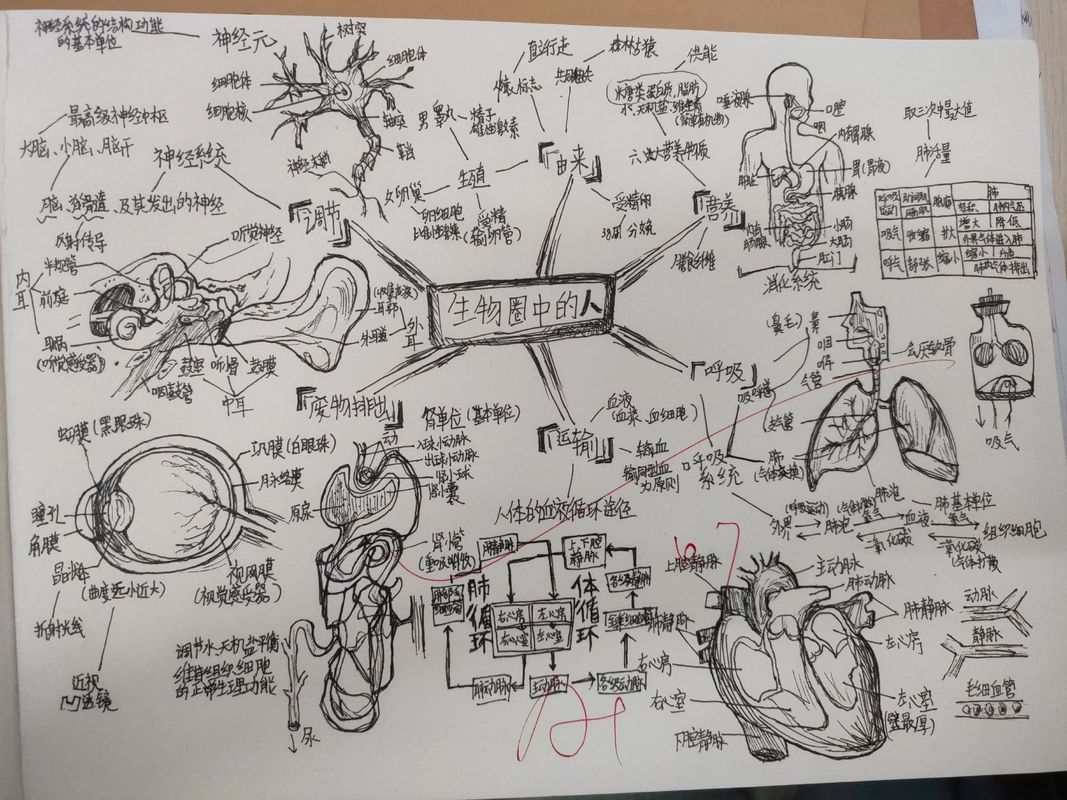 神经系统的结构功能
的基本单位
神经元
树突
细胞体
细胞体
细胞核
轴突
神经末梢
最高级神经中枢
大脑、小脑、脑干
神经系统
脑、脊髓、及其发出的神经
反射传导
『调节』
男睾丸
精子
雄性激素
生殖
女卵巢
卵细胞
受精
(输卵管)
直立行走
森林古猿
共同祖先
『由来』
受精卵
分裂
供能
水糖类蛋白质、脂肪
水、无机盐、维生素
六大营养物质
『营养』
膳食纤维
唾液腺
口腔
咽
肝脏
胃(胃液)
胰腺
小肠
大肠
肛门
消化系统
取三次中最大值
肺活量
呼吸
运动
肺
容积
吸气
收缩
扩大
增大
降低
外界气体进入肺
呼气
舒张
缩小
缩小
升高
肺内气体排出
听觉神经
内耳
半规管
前庭
耳蜗
(听觉感受器)
咽鼓管
鼓室
听骨
鼓膜
中耳
耳郭
外耳
外耳道
生物圈中的人
虹膜(黑眼珠)
巩膜(白眼珠)
脉络膜
瞳孔
角膜
晶状体
(曲度远小近大)
视网膜
(视觉感受器)
折射光线
近视
凹透镜
『废物排出』
肾单位(基本单位)
入球小动脉
出球小动脉
肾小球
肾小囊
原尿
肾小管
(重吸收)
调节水、无机盐平衡
维持组织细胞
的正常生理功能
尿
『运输』
血液
(血浆、血细胞)
输血
输同型血
为原则
人体的血液循环途径
肺静脉
上、下腔
静脉
各级静脉
肺循环
体循环
右心房
左心房
右心室
左心室
肺动脉
主动脉
各级动脉
『呼吸』
呼吸道
呼吸
系统
(鼻毛)鼻
咽
喉
气管
会厌软骨
支气管
肺
(气体交换)
肺泡
肺基本单位
吸气
外界
肺泡
氧气
二氧化碳
血液
氧气
二氧化碳
组织细胞
(气体扩散)
上腔静脉
主动脉
肺动脉
肺静脉
肺静脉
左心房
右心房
右心室
左心室
(壁最厚)
下腔静脉
动脉
静脉
毛细血管